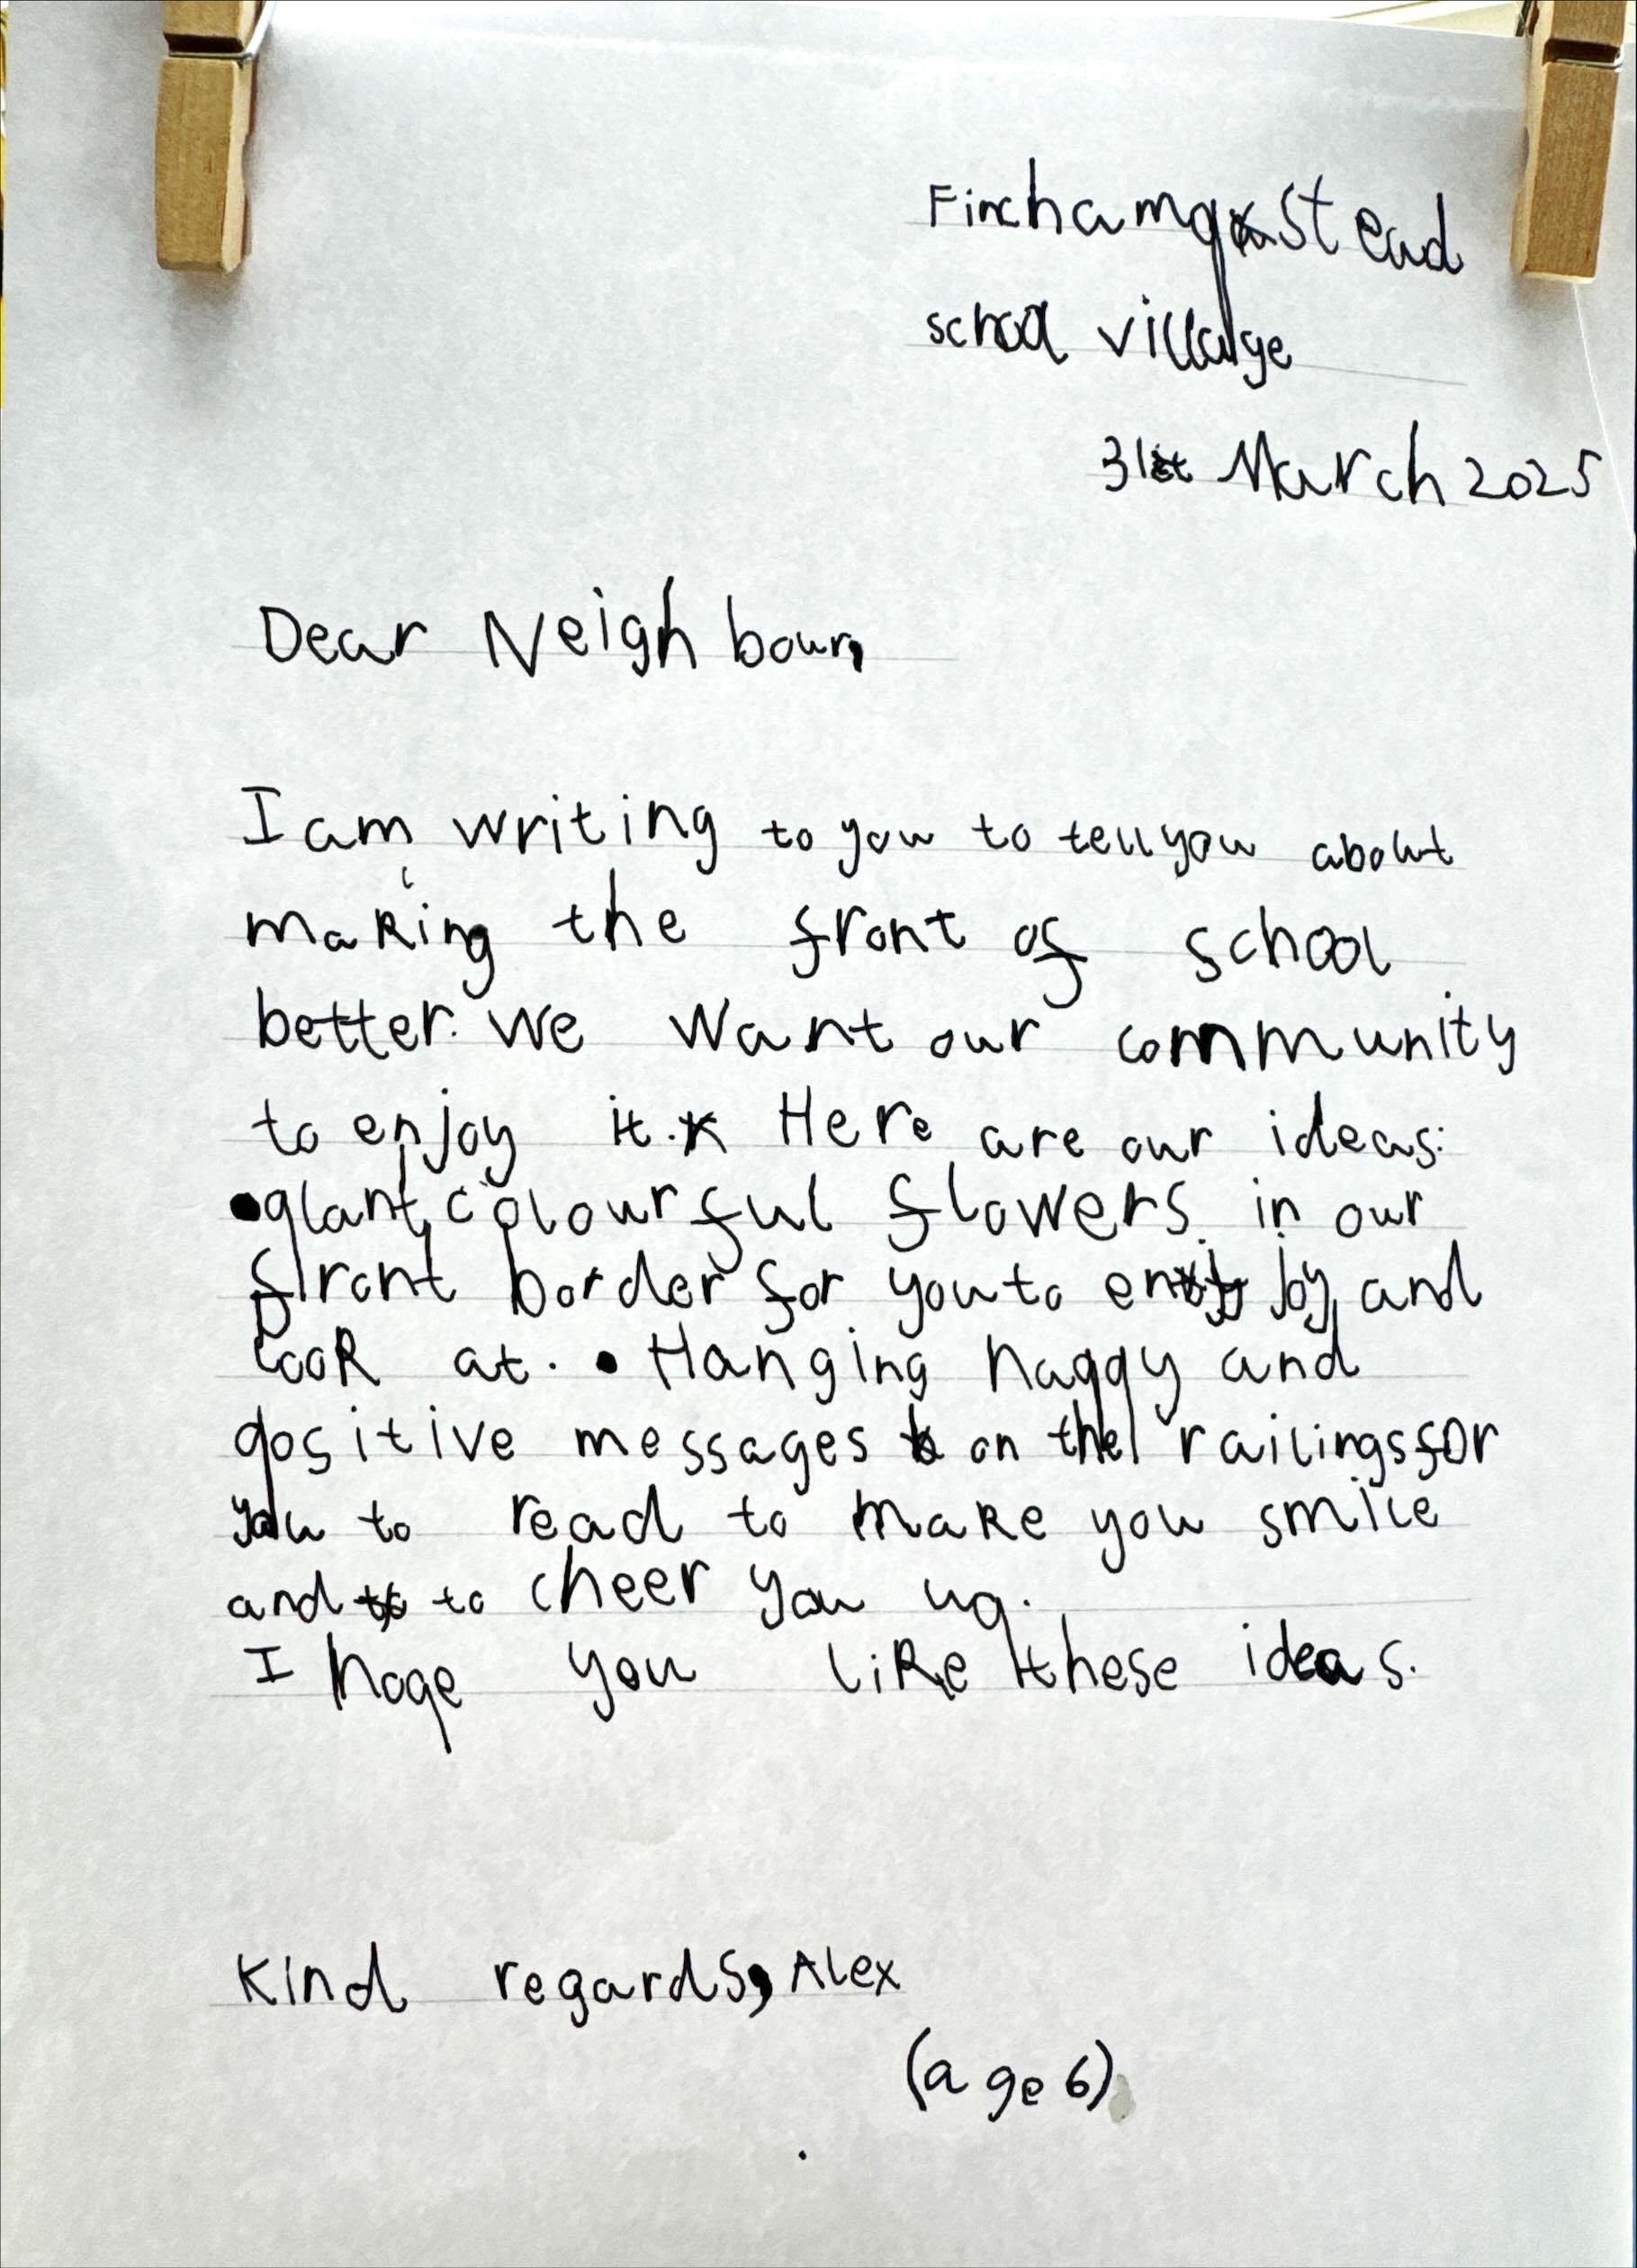 Finchampstead
school village
31st March 2025
Dear Neighbour,
I am writing to you to tell you about
making the front of school
better. We want our community
to enjoy it. Here are our ideas:
•plant colourful flowers in our
front border for you to enjoy and
look at. • Hanging happy and
positive messages on the railings for
you to read to make you smile
and to cheer you up.
I hope you like these ideas.
Kind regards, Alex
(age 6)